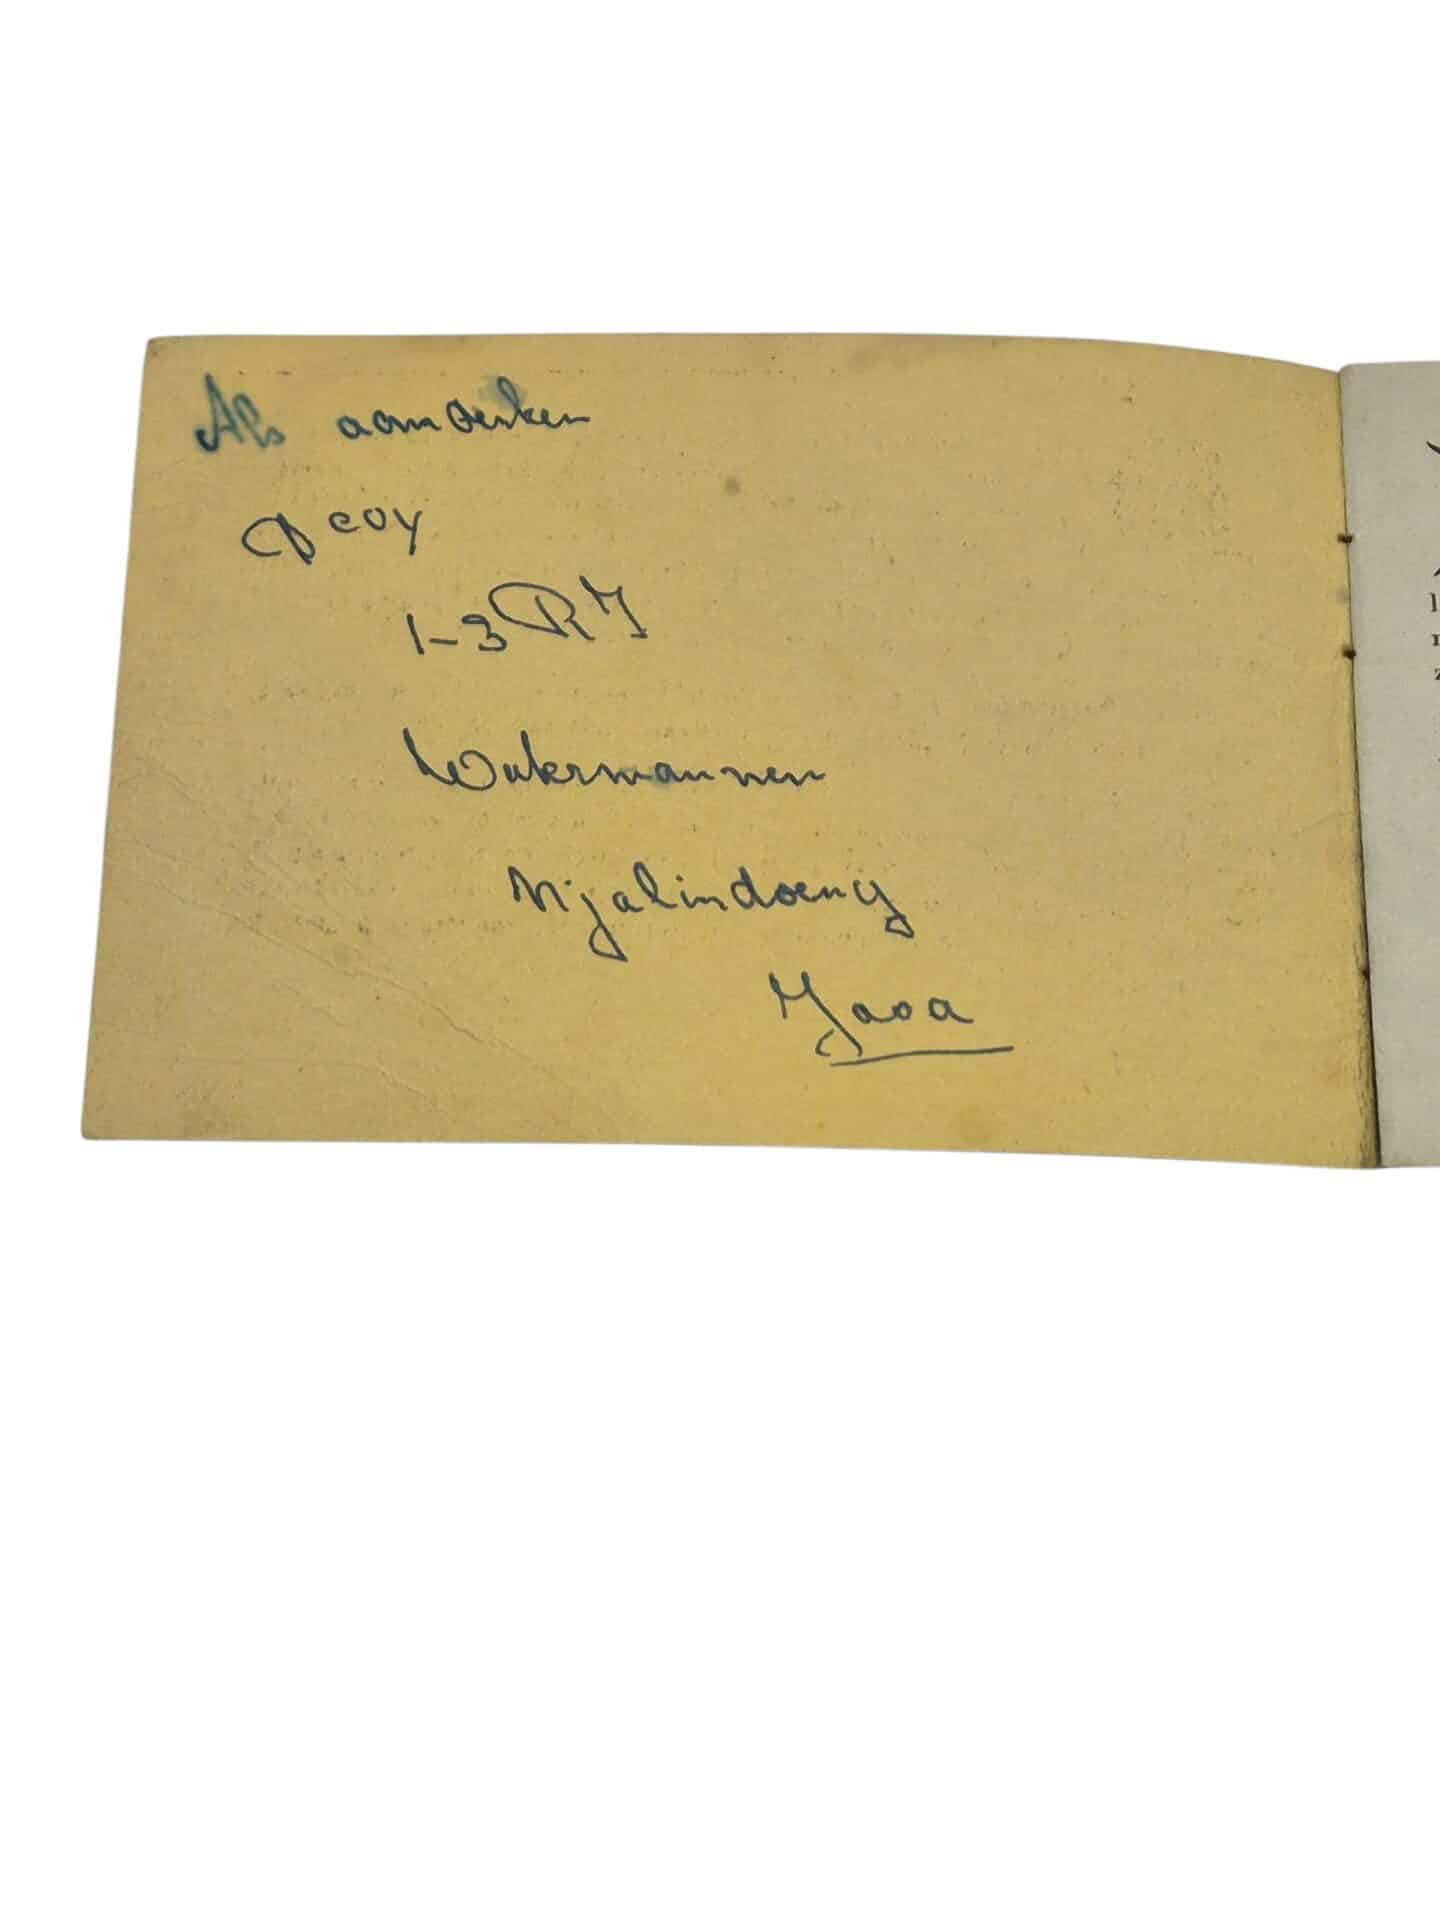 Als aandenken
D coy
1-3 RI
Watermannen
Njalindoeng
Java